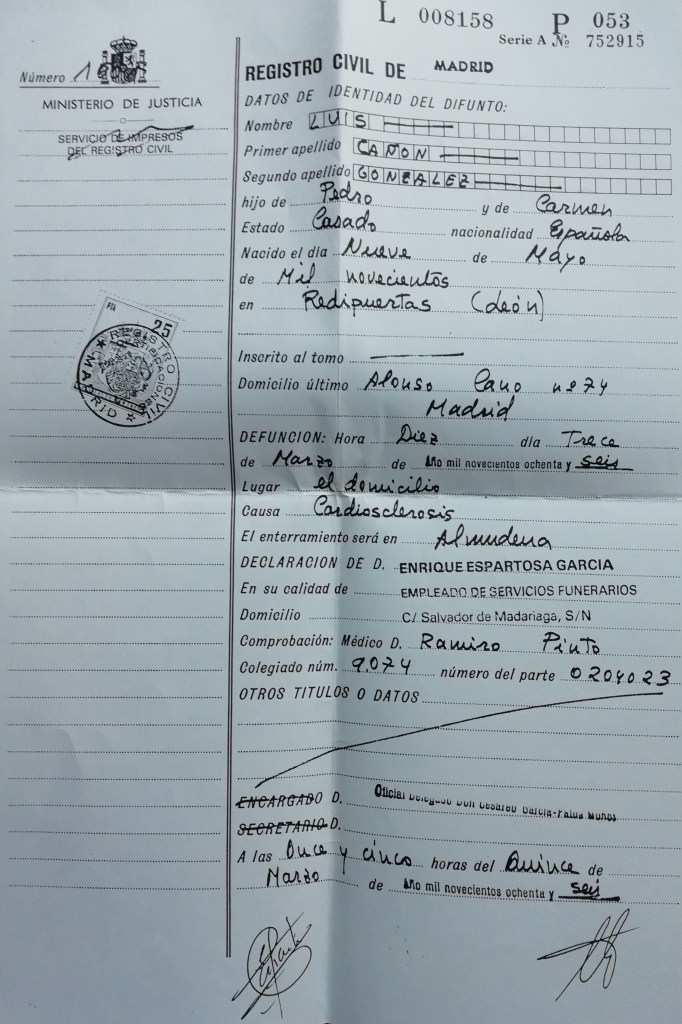 L 008158 P 053
Serie A № 752915
Número 1
MINISTERIO DE JUSTICIA
SERVICIO DE IMPRESOS
DEL REGISTRO CIVIL
PTA 25
REGISTRO CIVIL
CERTIFICACIONES
MADRID
REGISTRO CIVIL DE MADRID
DATOS DE IDENTIDAD DEL DIFUNTO:
Nombre LUIS
Primer apellido CAÑON
Segundo apellido GONZALEZ
hijo de Pedro y de Carmen
Estado Casado nacionalidad Española
Nacido el día Nueve de Mayo
de Mil novecientos
en Redipuertas (León)
Inscrito al tomo
Domicilio último Alonso Cano nº 74
Madrid
DEFUNCION: Hora Diez día Trece
de Marzo de Año mil novecientos ochenta y seis
Lugar el domicilio
Causa Cardiosclerosis
El enterramiento será en Almudena
DECLARACION DE D. ENRIQUE ESPARTOSA GARCIA
En su calidad de EMPLEADO DE SERVICIOS FUNERARIOS
Domicilio C/ Salvador de Madariaga, S/N
Comprobación: Médico D. Ramiro Pinto
Colegiado núm. 9.074 número del parte 0204023
OTROS TITULOS O DATOS
ENCARGADO D. Oficial Delegado Don Cesareo García-
SECRETARIO D.
A las Once y cinco horas del Quince de
Marzo de Año mil novecientos ochenta y seis